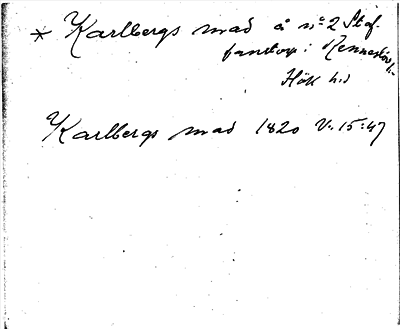 * Karlbergs mad å no 2 Staf-
fanstorp i Rennesløv
Høk h.d
Karlbergs mad 1820 V. 15:47